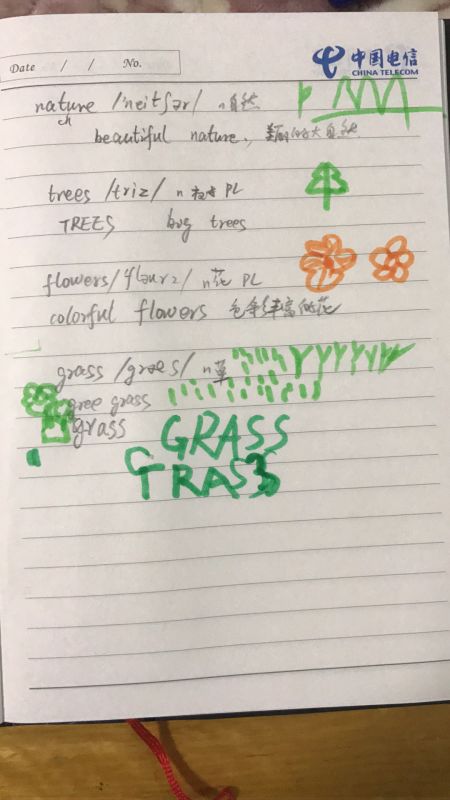 中国电信
CHINA TELECOM
Date / / No.
nature /'neitʃər/ n自然
ch
beautiful nature, 美丽的大自然
trees /triz/ n PL
TREES trees
flowers/ n花 PL
colorful flowers 色彩丰富的花
grass /græs/ n草
gree grass
grass
GRASS